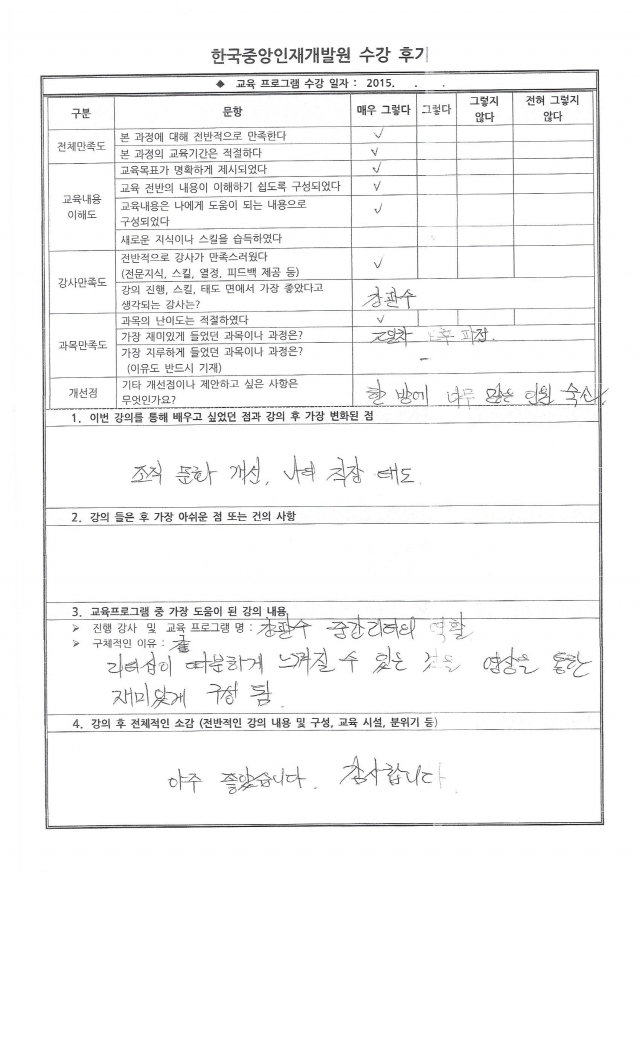 한국중앙인재개발원 수강 후기
◆ 교육 프로그램 수강 일자 : 2015. . .
구분 문항 매우 그렇다 그렇다 그렇지 않다 전혀 그렇지 않다
전체만족도 본 과정에 대해 전반적으로 만족한다 √
본 과정의 교육기간은 적절하다 √
교육내용 이해도 교육목표가 명확하게 제시되었다 √
교육 전반의 내용이 이해하기 쉽도록 구성되었다 √
교육내용은 나에게 도움이 되는 내용으로
구성되었다 √
새로운 지식이나 스킬을 습득하였다
강사만족도 전반적으로 강사가 만족스러웠다
(전문지식, 스킬, 열정, 피드백 제공 등) √
강의 진행, 스킬, 태도 면에서 가장 좋았다고
생각되는 강사는? 강관수
과목만족도 과목의 난이도는 적절하였다 √
가장 재미있게 들었던 과목이나 과정은?
가장 지루하게 들었던 과목이나 과정은?
(이유도 반드시 기재) -
개선점 기타 개선점이나 제안하고 싶은 사항은
무엇인가요? 한 방에 너무 많은 인원 숙식
1. 이번 강의를 통해 배우고 싶었던 점과 강의 후 가장 변화된 점
조직 문화 개선, 나의 직장 태도.
2. 강의 들은 후 가장 아쉬운 점 또는 건의 사항
3. 교육프로그램 중 가장 도움이 된 강의 내용
➢ 진행 강사 및 교육 프로그램 명 : 강관수 중간리더의 역활
➢ 구체적인 이유 :
리더십이 따분하게 느껴질 수 있는 것을 영상을 통한
재미있게 구성 됨.
4. 강의 후 전체적인 소감 (전반적인 강의 내용 및 구성, 교육 시설, 분위기 등)
아주 좋았습니다. 감사합니다.